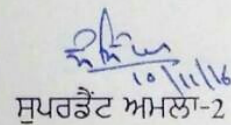 10/11/16
ਸੁਪਰਡੈਂਟ ਅਮਲਾ-2